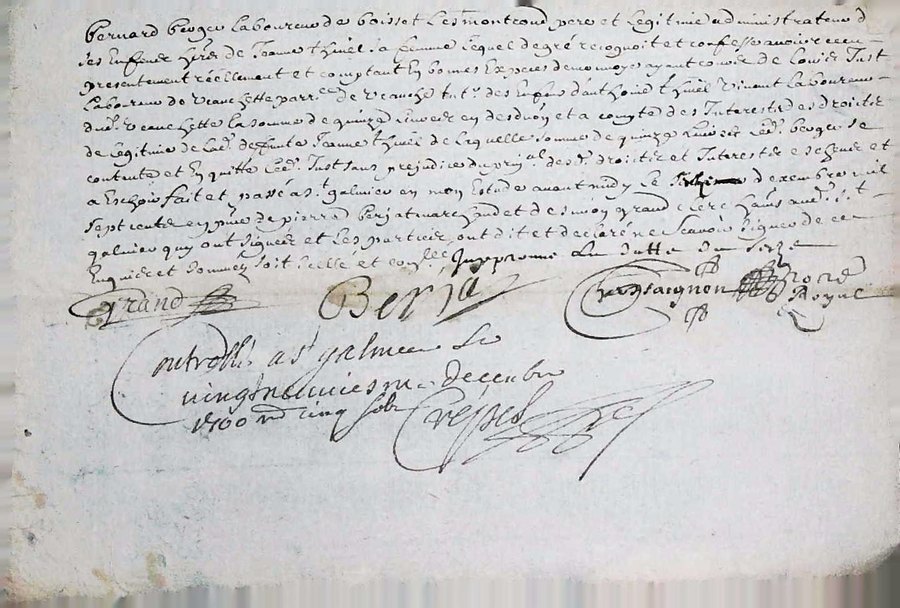 bernard berger laboureur de boisset les montrond pere et legitime administrateur d
ses enfens hers de Jeanne thinel sa femme lequel de gré recognoit et confesse avoir receu
presentement réellement et comptant en bonnes expeces de monnoye ayant cours de Louis Just
laboureur de veauchette parre de veauche tuteur des enfans d'anthoine thinel vivant laboureur
dud. veauchette la somme de quinze livres et en desduon et a compte des Interestz des droictz
de legitime de lad. deffunte Jeanne thinel de laquelle somme de quinze livres led. berger se
contente et en quitte led. Just sans prejudice du prinal desd. droictz et Interestz escheus et
a eschoir fait et passé a st galmier en mon estude avant midy le seize decembre mil
sept cents en pnce de pierre berjat marchand et de simon grand clerc habns aud. st
galmier quy ont signés et les parties ont dit et declaré ne scavoir signer de ce
enquises et sommées soit scellé et con. J'approuve la datte du seize
grand Berjat Chassaignon Notre
Royal
Controllé a st galmier le
vingt neuviesme decembre
1700 rd cinq sols Crépet